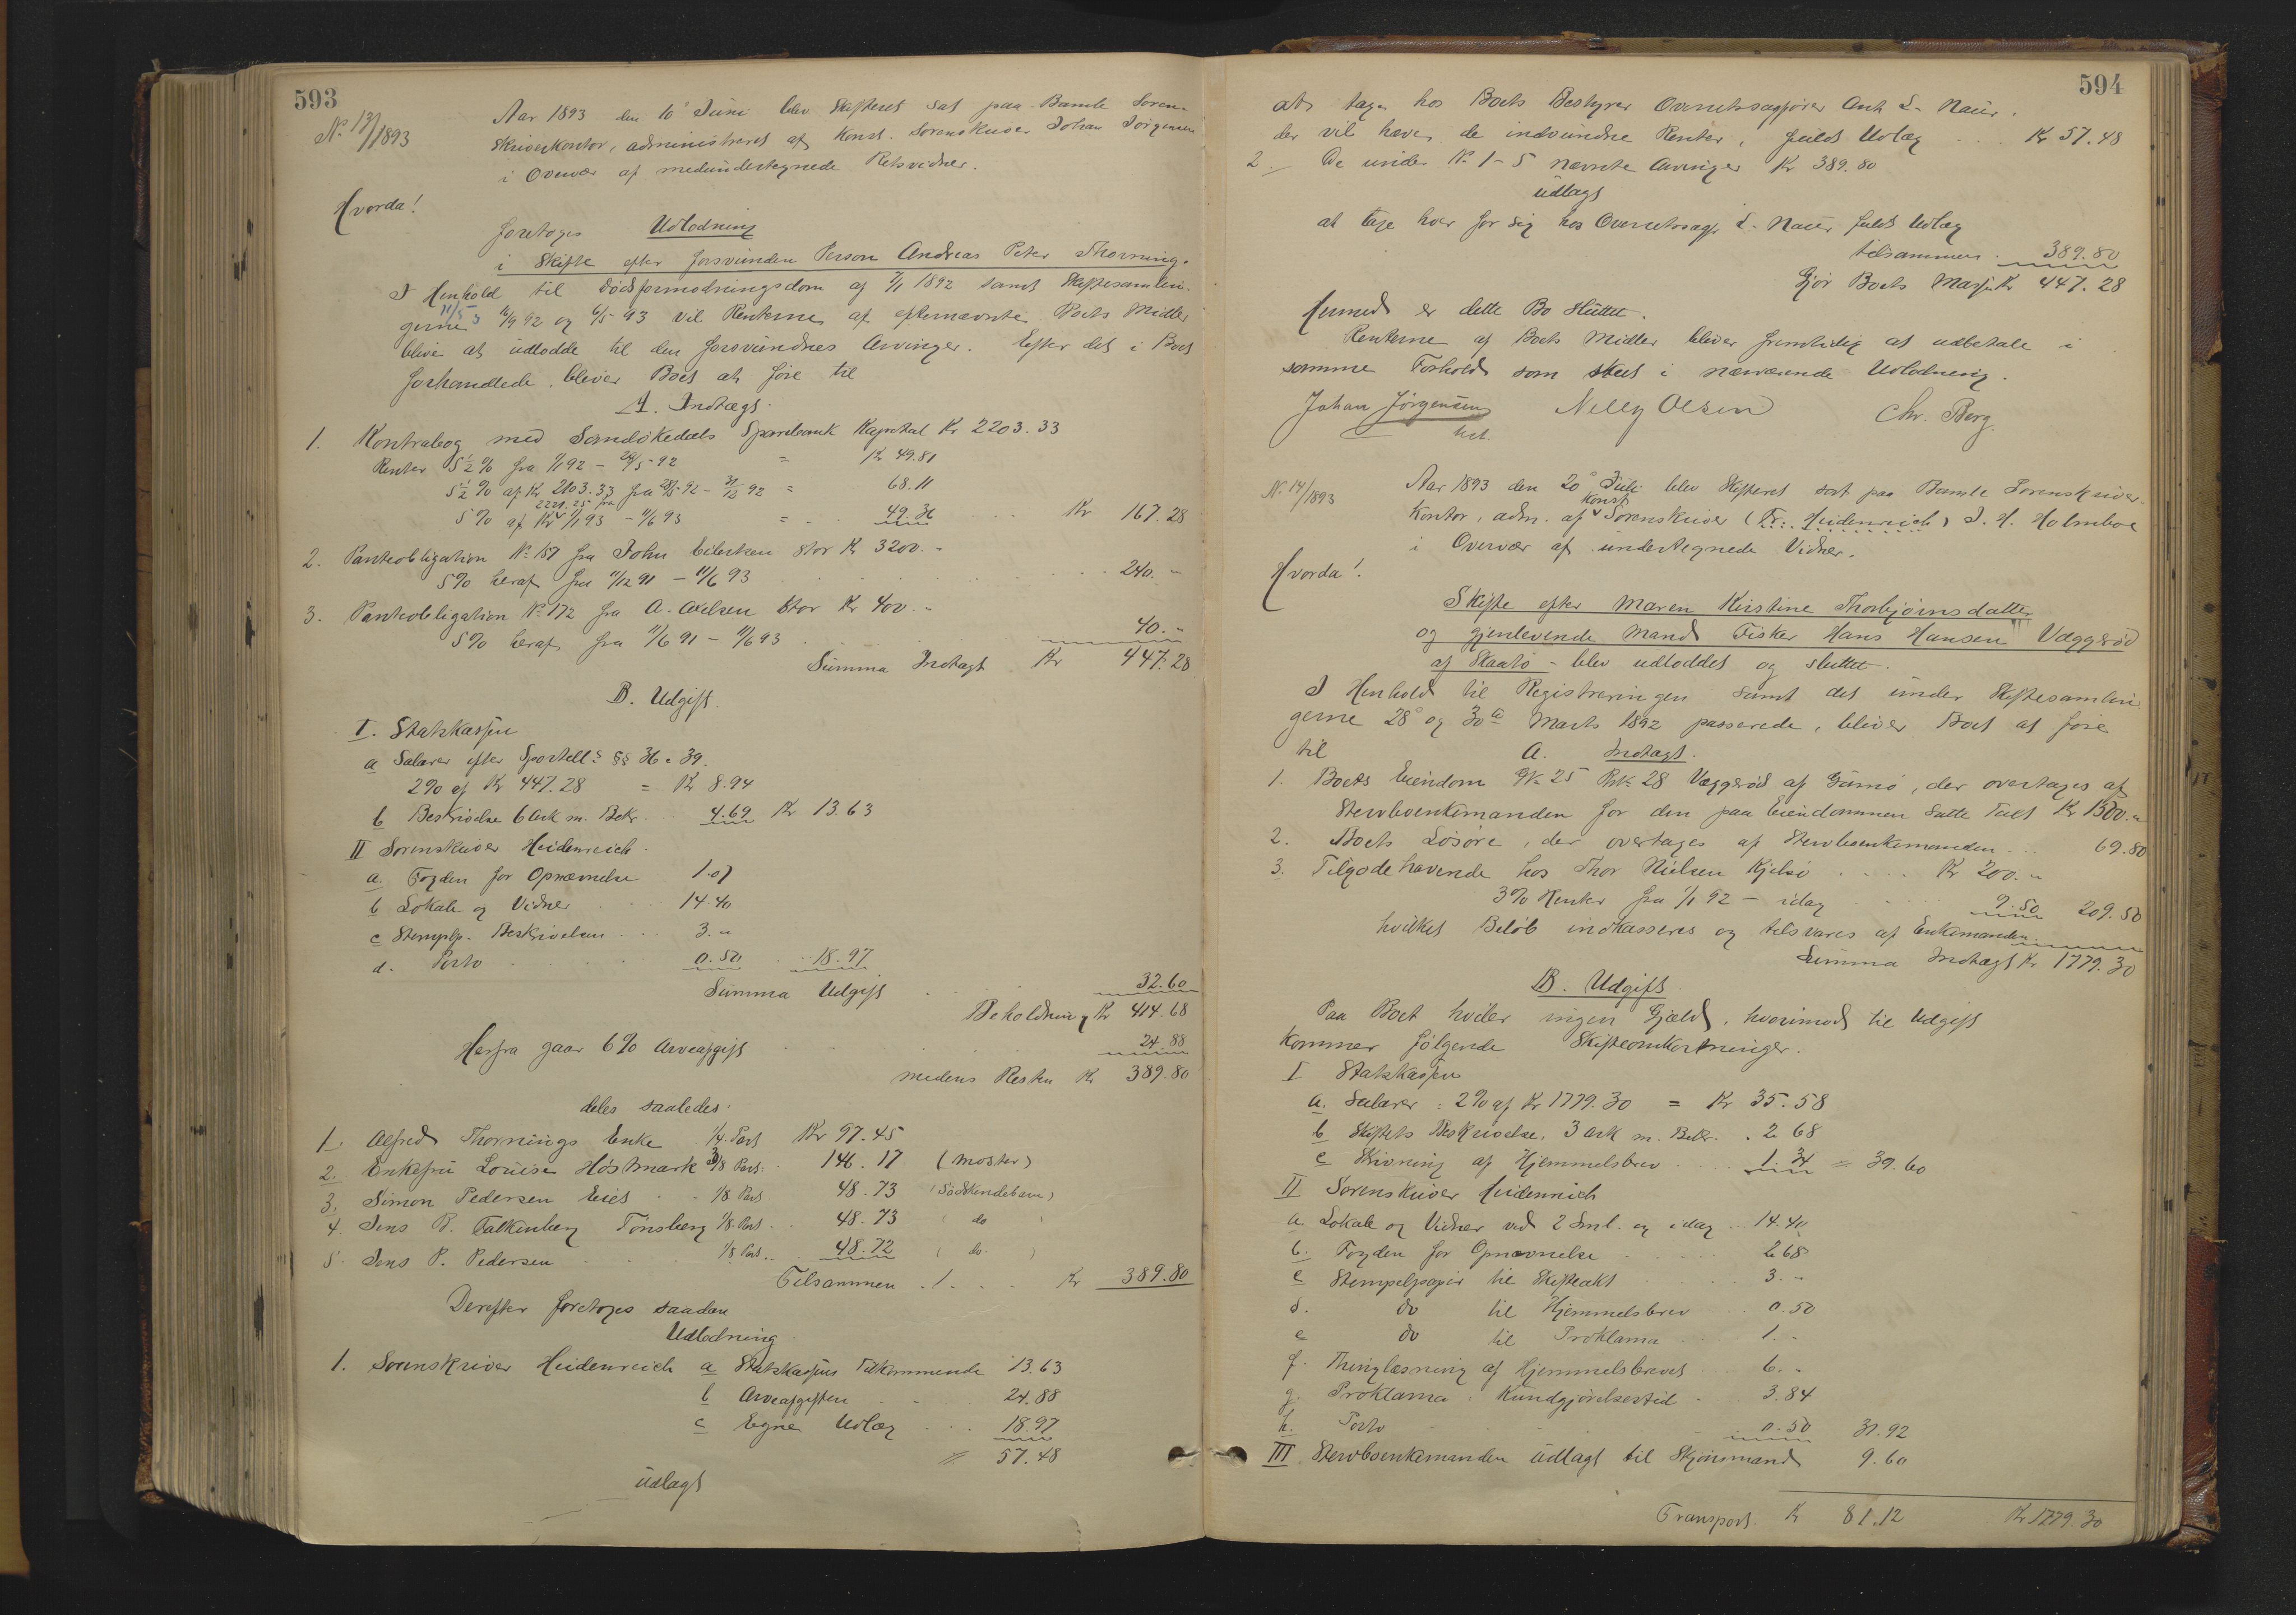 593
No 13/1893
Aar 1893 den 10 Juni blev Skifteret sat paa Bamle Soren-
skriverkontor, administreret af Konst. Sorenskriver Johan Jörgensen
i Overvær af medundertegnede Retsvidner.
Hvorda!
foretoges Udlodning
i Skifte efter forsvunden Person Andreas Peter Thorning.
I Henhold til Dödsformodningsdom af 7/1 1892 samt Skiftesamlin-
gerne 16/9 92 og 6/5 93 vil Renterne af efternævnte Boets Midler
blive at udlodde til den forsvundnes Arvinger. Efter det i Boet
forhandlede bliver Boet at före til
A. Indtægt.
1. Kontrabog med Sandökedals Sparebank Kapital Kr 2203.33
Renter 5½ % fra 1/1 92 - 28/5 92 = Kr 49.81
5½ % af Kr 2103.33 fra 28/5 92 - 31/12 92 = 68.11
2221.25 fra
5 % af Kr 1/1 93 - 11/6 93 = 49.36 Kr 167.28
2. Panteobligation No 157 fra John Eilertsen stor Kr 3200.-
5% heraf fra 11/12 91 - 11/6 93 240.-
3. Panteobligation No 172 fra A. Axelsen stor Kr 400.-
5% heraf fra 11/6 91 - 11/6 93 40.-
Summa Indtægt Kr 447.28
B. Udgift.
I. Statskassen
a Salærer efter Sportell. §§ 36 & 39.
2% af Kr 447.28 = Kr 8.94
b Beskrivelse 6 ark m. Bekr. 4.69 Kr 13.63
II Sorenskriver Heidenreich.
a. Fogden for Opnævnelse 1.07
b Lokale og Vidner 14.40
c Stemplp. Beskrivelsen 3.-
d. Porto 0.50 18.97
Summa Udgift 32.60
Beholdning Kr 414.68
Herfra gaar 6% Arveafgift 24.88
medens Resten Kr 389.80
deles saaledes:
1. Alfred Thornings Enke 1/4 Part Kr 97.45
2. Enkefru Louise Höstmark 3/8 Part. 146.17 (Moster)
3. Simon Pedersen Eiet 1/8 Part 48.73 (Södskendebarn)
4. Jens B. Falkenberg Tönsberg 1/8 Part 48.73 ( do )
5. Jens P. Pedersen 1/8 Part 48.72 ( do. )
Tilsammen Kr 389.80
Derefter foretoges saadan
Udlodning
1. Sorenskriver Heidenreich a Statskassens Tilkommende 13.63
b Arveafgiften 24.88
c Egne Udlæg 18.97
= 57.48
udlagt
594
at tage hos Boets Bestyrer Overretssagförer Ant. L. Naur.
der vil hæve de indvundne Renter, fuldt Udlæg Kr 57.48
2. De under No 1-5 nævnte Arvinger Kr 389.80
udlagt
at tage hver for sig hos Overretssagf. L. Naur fuldt Udlæg
tilsammen 389.80
Gjör Boets Masse Kr 447.28
Hermed er dette Bo sluttet.
Renterne af Boets Midler bliver fremtidig at udbetale i
samme Forhold som skeet i nærværende Udlodning.
Johan Jörgensen Nelly Olsen Chr. Berg.
kst.
No 14/1893
Aar 1893 den 20 Juli blev Skifteret sat paa Bamle Sorenskriver-
Konst
kontor, adm. af Sorenskriver (Fr. Heidenreich) J. H. Holmboe
i Overvær af undertegnede Vidner.
Hvorda!
Skifte efter Maren Kirstine Thorbjörnsdatter
og gjenlevende Mand Fisker Hans Hansen Væggeröd
af Skaatö - blev udloddet og sluttet.
I Henhold til Registreringen samt det under Skiftesamlin-
gerne 28 og 30 Marts 1892 passerede, bliver Boet at före
til A. Indtægt.
1. Boets Eiendom Gk. 25 Brk. 28 Væggeröd af Gumö, der overtages af
Stervboenkemanden for den paa Eiendommen satte Taxt Kr 1500.-
2. Boets Lösöre, der overtages af Stervboenkemanden 69.80
3. Tilgodehavende hos Thor Nielsen Kjelsö Kr 200.-
3% Renter fra 1/1 92 - idag 9.50 209.50
hvilket Belöb indkasseres og tilsvares af Enkemanden.
Summa Indtægt Kr 1779.30
B. Udgift
Paa Boet hviler ingen Gjæld, hvorimod til Udgift
kommer fölgende Skifteomkostninger.
I Statskassen
a. Salærer: 2% af Kr 1779.30 = Kr 35.58
b Skiftets Beskrivelse, 3 ark m. Bekr. 2.68
c Skrivning af Hjemmelsbrev 1.34 = 39.60
II Sorenskriver Heidenreich
a. Lokale og Vidner ved 2 Saml. og idag 14.40
b. Fogden for Opnævnelse 2.68
c Stempelpapir til Skifteakt 3.-
d. do til Hjemmelsbrev 0.50
e do til Proklama 1.-
f. Thinglæsning af Hjemmelsbrevet 6.-
g. Proklama i Kundgjörelsestid 3.84
h. Porto 0.50 31.92
III Stervboenkemanden udlagt til Skjönsmænd 9.60
Transport Kr 81.12 Kr 1779.30